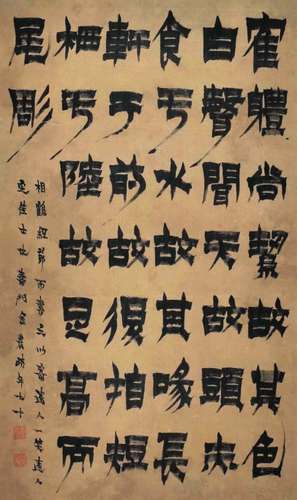 寉體尚絜故其色
白聲聞天故頭赤
食亏水故其喙長
軒于前故後指短
栖亏陸故足高而
尾彫
相鶴經節而書之以寄達人一笑達人
佳士也壽門金農時年七十